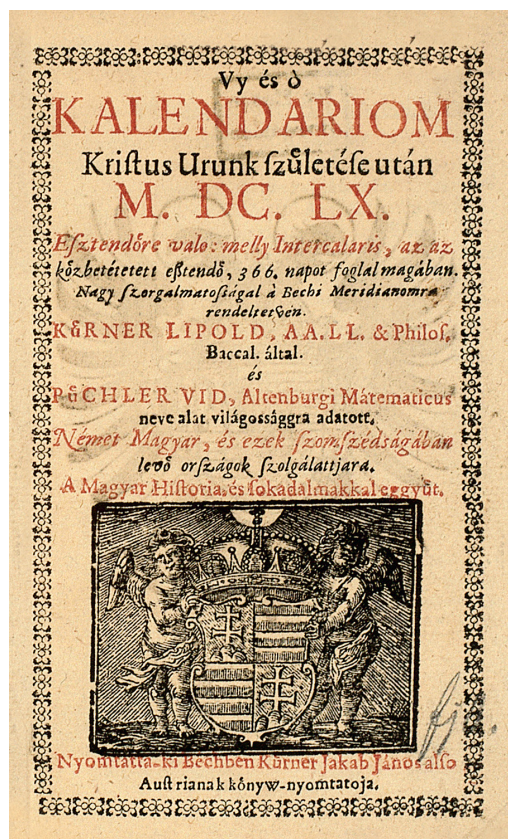 Vy és ò
KALENDARIOM
Kriſtus Urunk ſzůletéſe után
M. DC. LX.
Eſztendőre valo: melly Intercalaris, az az
kőzbetétetett eßtendő, 366. napot foglal magában.
Nagy ſzorgalmatoſságal à Bechi Meridianomra
rendeltetvén.
KůRNER LIPOLD, AA. LL. & Philoſ.
Baccal. által.
és
PůCHLER VID, Altenburgi Mátematicus
neve alat világossággra adatott.
Német Magyar, és ezek ſzomſzédságában
levő orſzágok ſzolgálattjara.
A Magyar Hiſtoria, és ſokadalmakkal eggyůt.
Nyomtatta-ki Bechben Kůrner Jakab János alſo
Auſtrianak kőnyw-nyomtatoja.